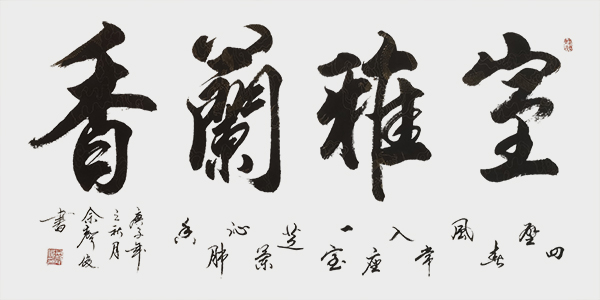 室雅蘭香
四壁春風常入座一室芝蘭沁肺香
庚子年
之秋月
書